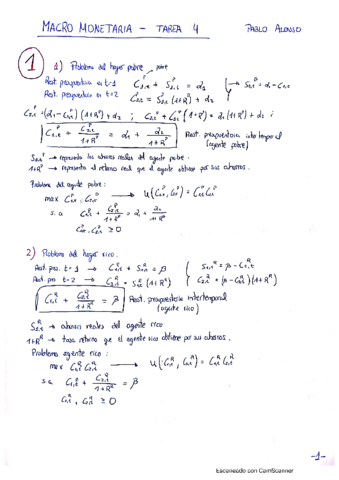 MACRO MONETARIA - TAREA 4 PABLO ALONSO
1 1) Problema del hogar pobre
Rest. presupuestaria en t=1 C₁,ₜᴾ + S₁,ₜᴾ = α₁ → S₁,ₜᴾ = α₁ - C₁,ₜᴾ
Rest. presupuestaria en t=2 C₂,ₜᴾ = S₁,ₜᴾ (1+Rᴾ) + α₂
C₂,ₜᴾ = (α₁ - C₁,ₜᴾ)(1+Rᴾ) + α₂ ; C₂,ₜᴾ + C₁,ₜᴾ (1+Rᴾ) = α₁ (1+Rᴾ) + α₂ ;
C₁,ₜᴾ + C₂,ₜᴾ/(1+Rᴾ) = α₁ + α₂/(1+Rᴾ) Rest. presupuestaria intertemporal
(agente pobre)
S₁,ₜᴾ → representa los ahorros reales del agente pobre.
1+Rᴾ → representa el retorno real que el agente obtiene por sus ahorros.
Problema del agente pobre:
max C₁,ₜᴾ · C₂,ₜᴾ → U(C₁,ₜᴾ, C₂,ₜᴾ) = C₁,ₜᴾ C₂,ₜᴾ
s.a C₁,ₜᴾ + C₂,ₜᴾ/(1+Rᴾ) = α₁ + α₂/(1+Rᴾ)
C₁,ₜᴾ, C₂,ₜᴾ ≥ 0
2) Problema del hogar rico.
Rest. pres. t=1 → C₁,ₜᴿ + S₁,ₜᴿ = β S₁,ₜᴿ = β - C₁,ₜᴿ
Rest. pres t=2 → C₂,ₜᴿ = S₁,ₜᴿ (1+Rᴿ) C₂,ₜᴿ = (β - C₁,ₜᴿ)(1+Rᴿ)
C₁,ₜᴿ + C₂,ₜᴿ/(1+Rᴿ) = β Rest. presupuestaria intertemporal
(agente rico)
S₁,ₜᴿ → ahorros reales del agente rico
1+Rᴿ → tasa retorno que el agente rico obtiene por sus ahorros.
Problema agente rico :
max C₁,ₜᴿ C₂,ₜᴿ → U(C₁,ₜᴿ, C₂,ₜᴿ) = C₁,ₜᴿ C₂,ₜᴿ
s.a C₁,ₜᴿ + C₂,ₜᴿ/(1+Rᴿ) = β
C₁,ₜᴿ, C₂,ₜᴿ ≥ 0
-1-
Escaneado con CamScanner